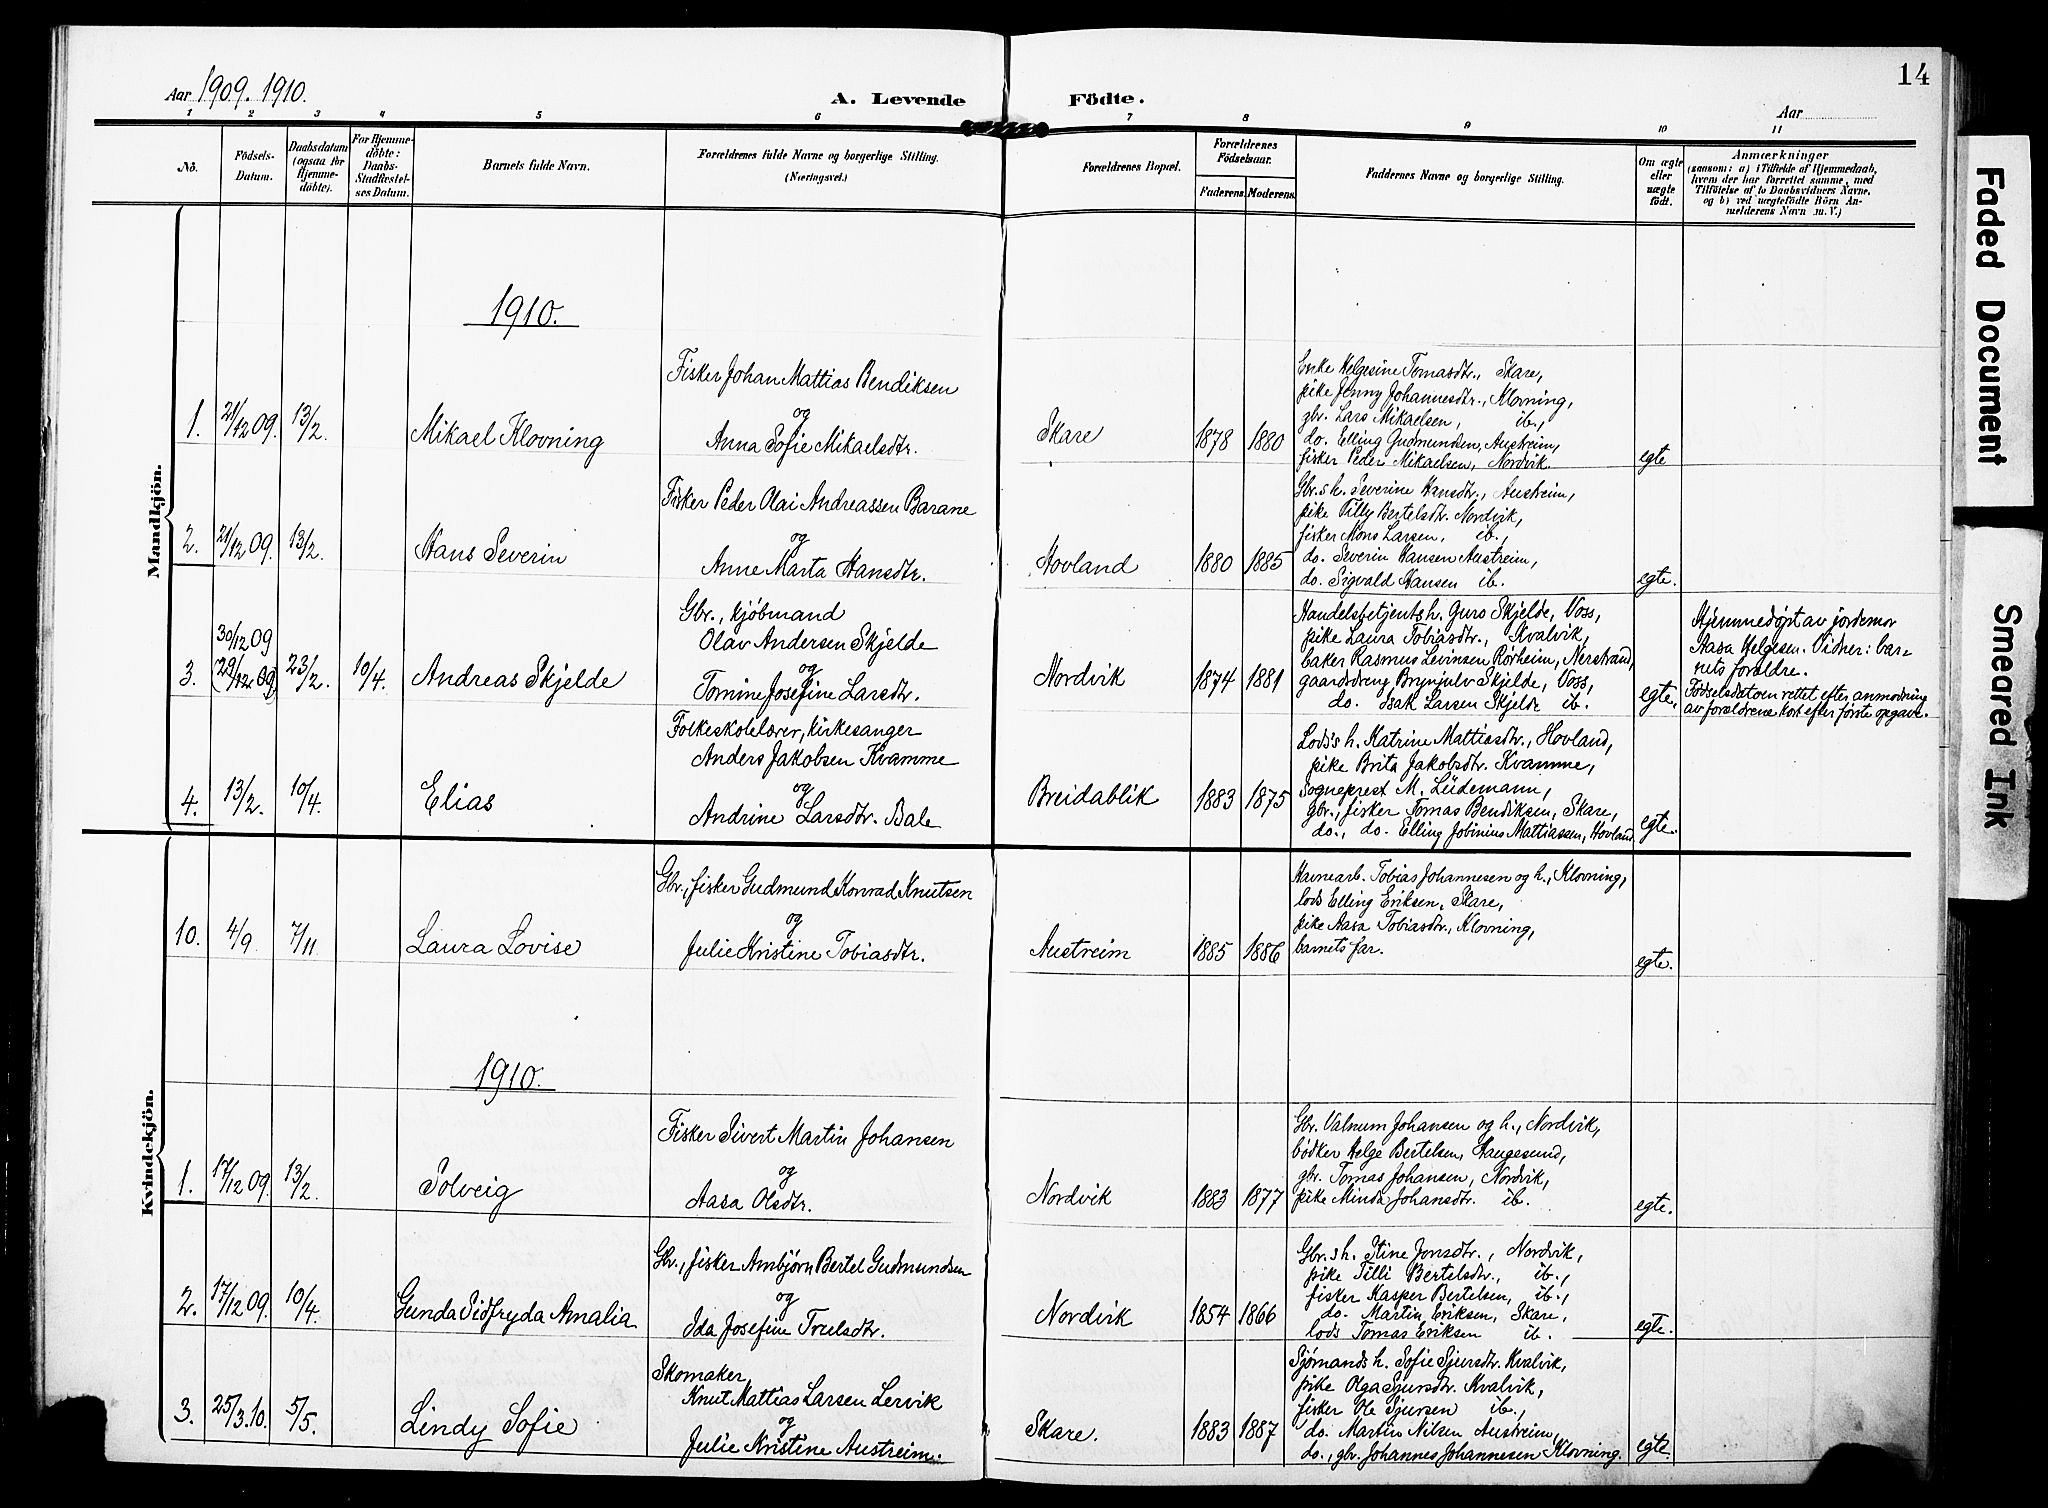 14
Aar 1909. 1910.
A. Levende Födte.
Aar
1 2 3 4 5 6 7 8 9 10 11
No.
Födsels-Datum.
Daabsdatum (ogsaa for Hjemmedöbte).
For Hjemmedöbte: Daabs-Stadfæstelses Datum.
Barnets fulde Navn.
Forældrenes fulde Navne og borgerlige Stilling. (Næringsvei.)
Forældrenes Bopæl.
Forældrenes Födselsaar.
Faderens. Moderens.
Faddernes Navne og borgerlige Stilling.
Om ægte eller uægte födt.
Anmærkninger
(saasom: a) i Tilfælde af Hjemmedaab, hvem der har forrettet samme, med Tilföielse af to Daabsvidners Navne. og b) ved uægtefödte Börn Anmelderens Navn m. V.)
Mandkjön.
1910.
1. 21/12 09. 13/2. Mikael Klovning
Fisker Johan Mattias Bendiksen
og
Anna Sofie Mikaelsdtr.
Skare 1878 1880
Enke Helgesine Tomasdtr., Skare,
pike Jenny Johannesdtr., Klovning,
gbr. Lars Mikaelsen, ib.,
do. Elling Gudmundsen, Austreim,
fisker Peder Mikaelsen, Nordvik.
egte
2. 21/12 09. 13/2. Hans Severin
Fisker Peder Olai Andreassen Barane
og
Anne Marta Hansdtr.
Hovland 1880 1885
Gbr.s h. Severine Hansdtr., Austreim,
pike Tilly Bertelsdtr. Nordvik,
fisker Mons Larsen, ib.,
do. Severin Hansen Austreim,
do. Sigvald Hansen ib.
egte.
3. 30/12 09 (29/12 09) 23/2. 10/4. Andreas Skjelde
Gbr., kjøbmand
Olav Andersen Skjelde
og
Tomine Josefine Larsdtr.
Nordvik 1874 1881
Handelsbetjents h. Guro Skjelde, Voss,
pike Laura Tobiasdtr., Kvalvik,
baker Rasmus Levinsen Rørheim, Nerstrand,
gaardsdreng Brynjulv Skjelde, Voss,
do. Isak Larsen Skjelde ib.
egte.
Hjemmedøpt av jordemor
Aasa Helgesen. Vidner: bar-
nets forældre.
Fødselsdatoen rettet efter anmodning
av forældrene kort efter første opgave.
4. 13/2. 10/4. Elias
Folkeskolelærer, kirkesanger
Anders Jakobsen Kvamme
og
Andrine Larsdtr. Bale
Breidablik 1883 1875
Lods's h. Katrine Mattiasdtr., Hovland,
pike Brita Jakobsdtr. Kvamme,
Sogneprest M. Lüdemann,
Gbr., fisker Tomas Bendiksen, Skare,
do., do. Elling Jobinius Mattiassen, Hovland
egte.
Kvindekjön.
10. 4/9. 7/11 Laura Lovise
Gbr., fisker Gudmund Konrad Knutsen
og
Julie Kristine Tobiasdtr.
Austreim 1885 1886
Havnearb. Tobias Johannesen og h., Klovning,
lods Elling Eriksen, Skare,
pike Aasa Tobiasdtr., Klovning,
barnets far.
egte.
1910.
1. 17/12 09. 13/2. Solveig
Fisker Sivert Martin Johansen
og
Aasa Olsdtr.
Nordvik 1883 1877
Gbr. Valnum Johansen og h., Nordvik,
bødker Helge Bertelsen, Haugesund,
gbr. Tomas Johansen, Nordvik,
pike Minda Johansdtr. ib.
egte.
2. 17/12 09. 10/4. Gunda Sidfryda Amalia
Gbr., fisker Ambjørn Bertel Gudmundsen
og
Ida Josefine Trulsdtr.
Nordvik 1854 1866
Gbr.s h. Stine Jonsdtr., Nordvik,
pike Tilli Bertelsdtr., ib.,
fisker Kasper Bertelsen, ib.,
do. Martin Eriksen, Skare,
lods Tomas Eriksen ib.
egte.
3. 25/3.10. 5/5. Lindy Sofie
Skomaker,
Knut Mattias Larsen Lervik
og
Julie Kristine Austreim.
Skare. 1883 1887
Sjømands h. Sofie Sjursdtr. Kvalvik,
pike Olga Sjursdtr. Kvalvik,
fisker Ole Sjursen ib.,
do. Martin Nilsen Austreim,
do., gbr. Johannes Johannesen Klovning.
egte.
Faded Document
Smeared Ink